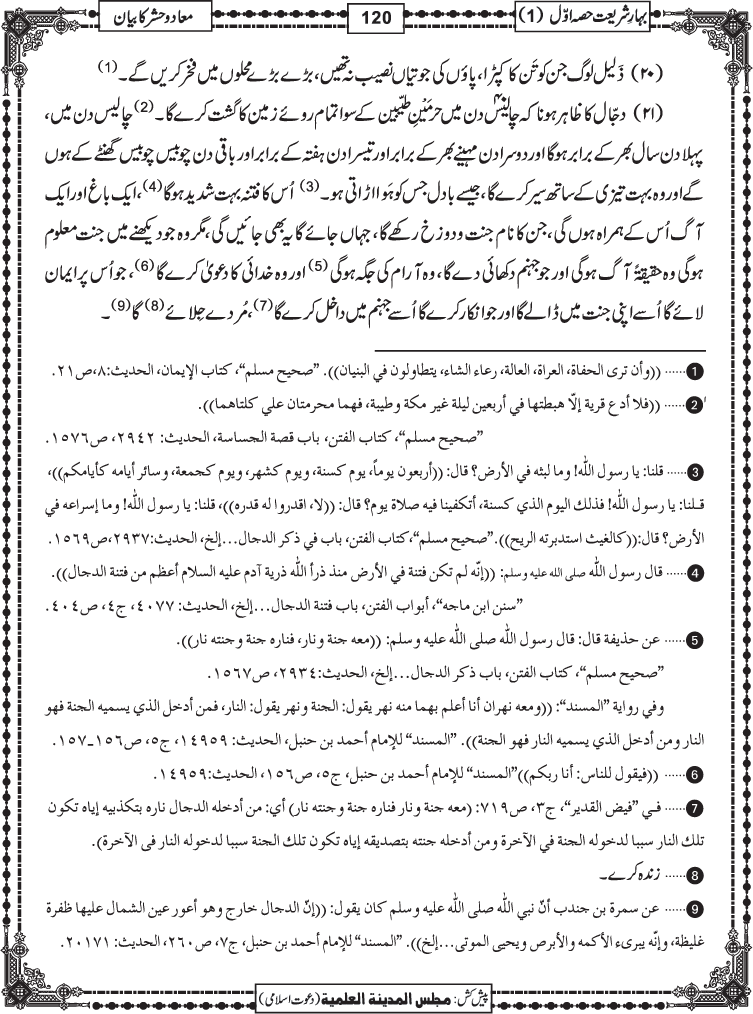 بہارِشریعت حصہ اوّل (1)
120
معاد وحشر کا بیان
(۲۰) ذلیل لوگ جن کو تَن کا کپڑا، پاؤں کی جوتیاں نصیب نہ تھیں، بڑے بڑے محلوں میں فخر کریں گے۔(1)
(۲۱) دجّال کا ظاہر ہونا کہ چالیس۴۰ دن میں حرمَیْنِ طیّبین کے سوا تمام روئے زمین کا گشت کرے گا۔(2) چالیس دن میں،
پہلا دن سال بھر کے برابر ہوگا اور دوسرا دن مہینے بھر کے برابر اور تیسرا دن ہفتہ کے برابر اور باقی دن چوبیس چوبیس گھنٹے کے ہوں
گے اور وہ بہت تیزی کے ساتھ سیر کرے گا، جیسے بادل جس کو ہَوا اڑاتی ہو۔(3) اُس کا فتنہ بہت شدید ہوگا(4)، ایک باغ اور ایک
آگ اُس کے ہمراہ ہوں گی، جن کا نام جنت ودوزخ رکھے گا، جہاں جائے گا یہ بھی جائیں گی، مگر وہ جو دیکھنے میں جنت معلوم
ہوگی وہ حقیقۃً آگ ہوگی اور جو جہنم دکھائی دے گا، وہ آرام کی جگہ ہوگی(5) اور وہ خدائی کا دعویٰ کرے گا(6)، جو اُس پر ایمان
لائے گا اُسے اپنی جنت میں ڈالے گا اور جو انکار کرے گا اُسے جہنم میں داخل کرے گا(7)، مُردے جِلائے(8) گا(9)۔
1 ...... ((وأن ترى الحفاة، العراة، العالة، رعاء الشاء، يتطاولون في البنيان)). ”صحيح مسلم“، كتاب الإيمان، الحديث:۸، ص۲۱.
2 ...... ((فلا أدع قرية إلّا هبطتها في أربعين ليلة غير مكة وطيبة، فهما محرمتان علي كلتاهما)).
”صحيح مسلم“، كتاب الفتن، باب قصة الجساسة، الحديث: ۲۹٤۲، ص۱٥۷٦.
3 ...... قلنا: يا رسول الله! وما لبثه في الأرض؟ قال: ((أربعون يوماً، يوم كسنة، ويوم كشهر، ويوم كجمعة، وسائر أيامه كأيامكم))،
قلنا: يا رسول الله! فذلك اليوم الذي كسنة، أتكفينا فيه صلاة يوم؟ قال: ((لا، اقدروا له قدره))، قلنا: يا رسول الله! وما إسراعه في
الأرض؟ قال:((كالغيث استدبرته الريح)).”صحيح مسلم“، كتاب الفتن، باب في ذكر الدجال...إلخ، الحديث:۲۹۳۷، ص۱٥٦۹.
4 ...... قال رسول الله صلى الله عليه وسلم: ((إنّه لم تكن فتنة في الأرض منذ ذرأ الله ذرية آدم عليه السلام أعظم من فتنة الدجال)).
”سنن ابن ماجه“، أبواب الفتن، باب فتنة الدجال...إلخ، الحديث: ٤۰۷۷، ج٤، ص٤۰٤.
5 ...... عن حذيفة قال: قال رسول الله صلى الله عليه وسلم: ((معه جنة ونار، فناره جنة وجنته نار)).
”صحيح مسلم“، كتاب الفتن، باب ذكر الدجال...إلخ، الحديث:۲۹۳٤، ص۱٥٦۷.
وفي رواية ”المسند“: ((ومعه نهران أنا أعلم بهما منه نهر يقول: الجنة ونهر يقول: النار، فمن أدخل الذي يسميه الجنة فهو
النار ومن أدخل الذي يسميه النار فهو الجنة)). ”المسند“ للإمام أحمد بن حنبل، الحديث: ۱٤۹٥۹، ج٥، ص۱٥٦ـ۱٥۷.
6 ...... ((فيقول للناس: أنا ربكم))”المسند“ للإمام أحمد بن حنبل، ج٥، ص۱٥٦، الحديث:۱٤۹٥۹.
7 ...... في ”فيض القدير“، ج۳، ص۷۱۹: (معه جنة ونار فناره جنة وجنته نار) أي: من أدخله الدجال ناره بتكذيبه إياه تكون
تلك النار سببا لدخوله الجنة في الآخرة ومن أدخله جنته بتصديقه إياه تكون تلك الجنة سببا لدخوله النار في الآخرة).
8 ...... زندہ کرے۔
9 ...... عن سمرة بن جندب أنّ نبي الله صلى الله عليه وسلم كان يقول: ((إنّ الدجال خارج وهو أعور عين الشمال عليها ظفرة
غليظة، وإنّه يبرىء الأكمه والأبرص ويحيى الموتى...إلخ)). ”المسند“ للإمام أحمد بن حنبل، ج۷، ص۲٦۰، الحديث: ۲۰۱۷۱.
پیش کش: مجلس المدینة العلمیة (دعوت اسلامی)